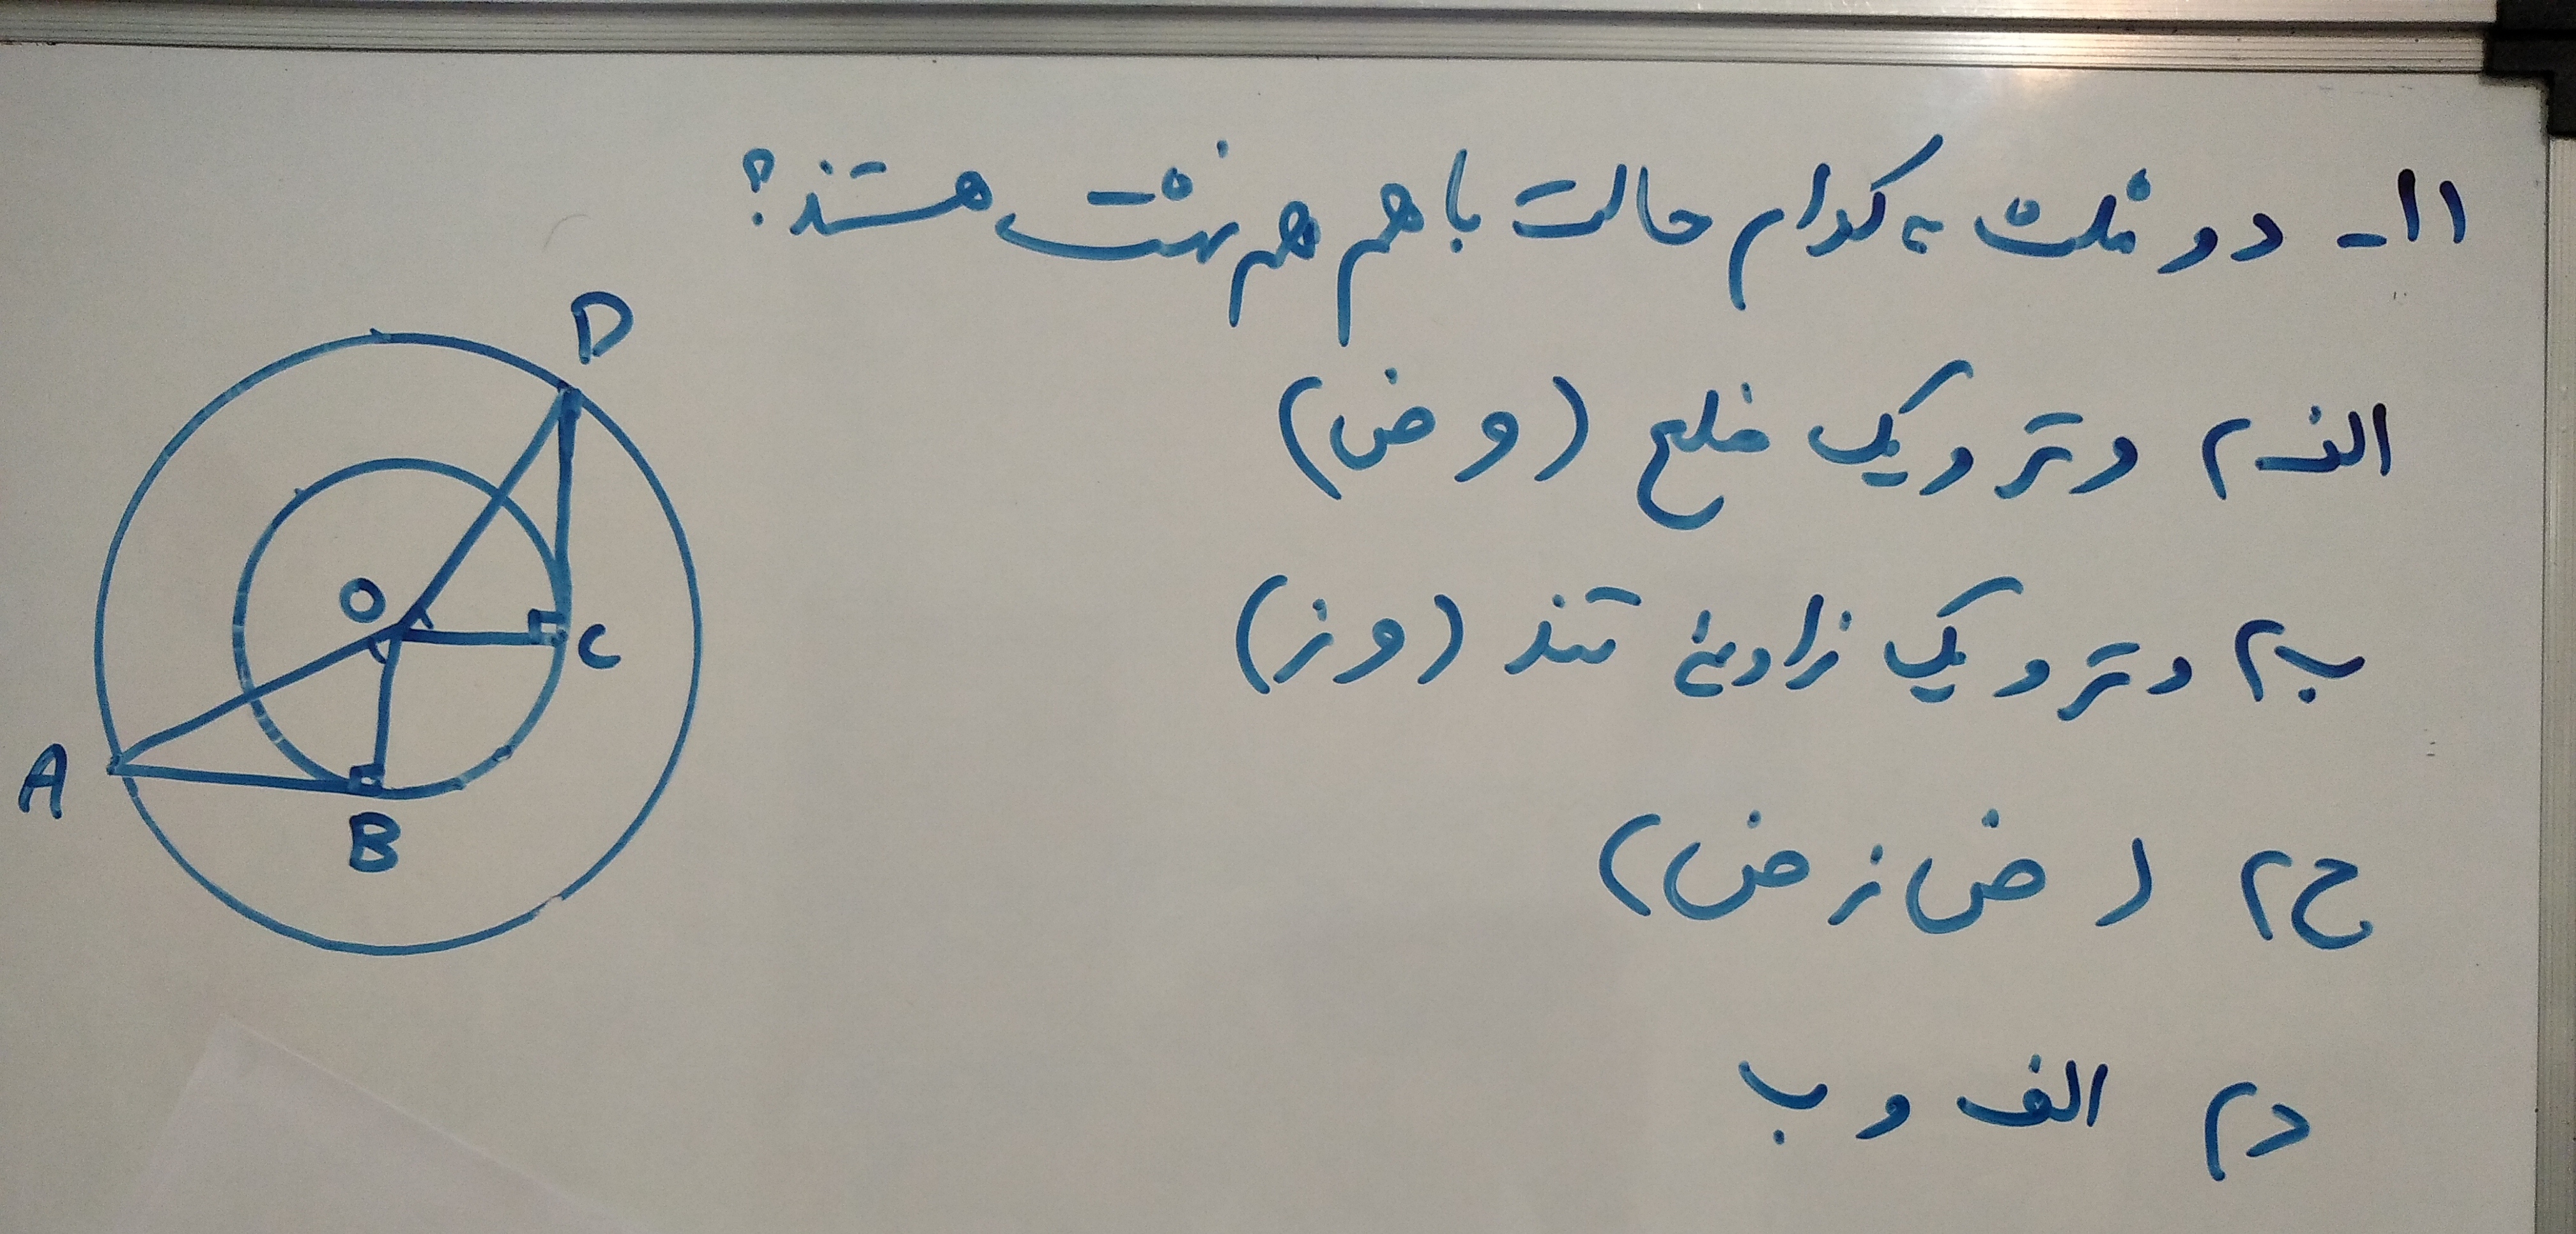 ۱۱- دو مثلث به کدام حالت با هم هم نهشت هستند؟
الف) وتر و یک ضلع (و ض)
ب) وتر و یک زاویهٔ تند (و ز)
ج) (ض ز ض)
د) الف و ب
D
O
C
A
B